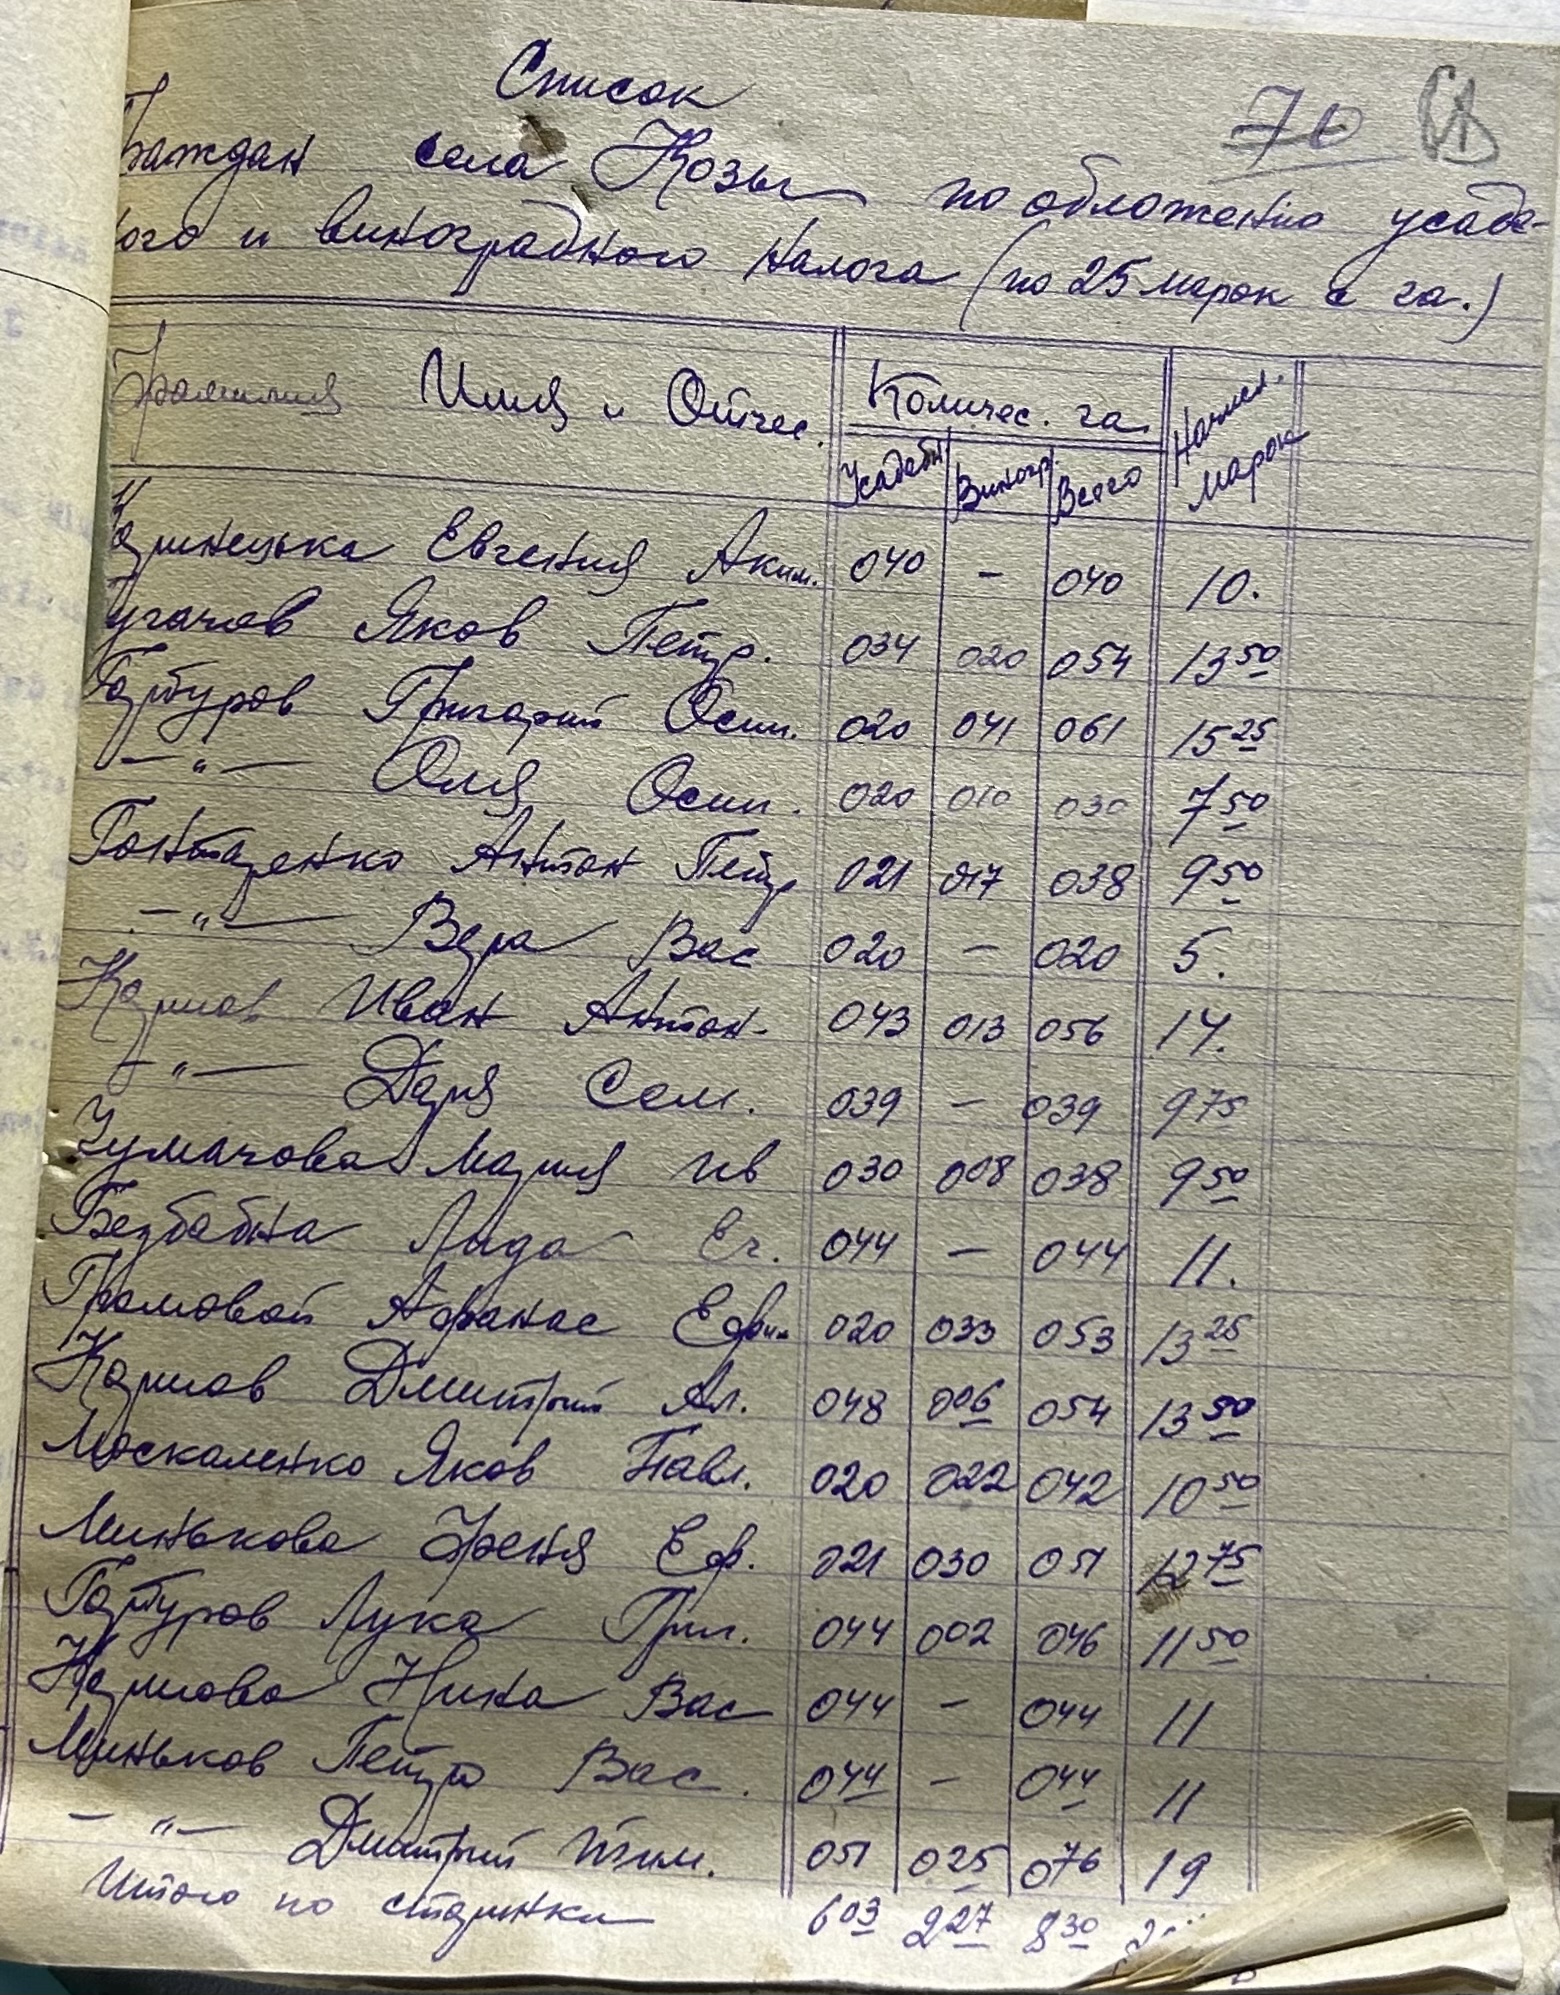 Список
70
Граждан села Козы по обложению усадеб-
ного и виноградного налога (по 25 марок с га.)
Фамилия Имя и Отчес. Количес. га. Начисл. марок
Усадебн Виногр. Всего
Евгения Аким. 040 — 040 10.
Пугачов Яков Петр. 034 020 054 13 50
Гарбуров Григорий Осип. 020 041 061 15 25
— „ — Оля Осип. 020 010 030 7 50
Гонтаренко Антон Петр 021 017 038 9 50
— „ — Вера Вас 020 — 020 5.
Карпов Иван Антон. 043 013 056 14.
— „ — Даря Сем. 039 — 039 9 75
Чумачова Мария Ив 030 008 038 9 50
Безбабна Лида Ег. 044 — 044 11.
Громовой Афанас Ефим 020 033 053 13 25
Карпов Дмитрий Ал. 048 006 054 13 50
Москаленко Яков Павл. 020 022 042 10 50
Минькова Френя Еф. 021 030 051 12 75
Гарбуров Лука Григ. 044 002 046 11 50
Карпова Нина Вас 044 — 044 11
Миньков Петро Вас. 044 — 044 11
— „ — Дмитрий Тим. 051 025 076 19
Итого по старинки 6 03 2 27 8 30